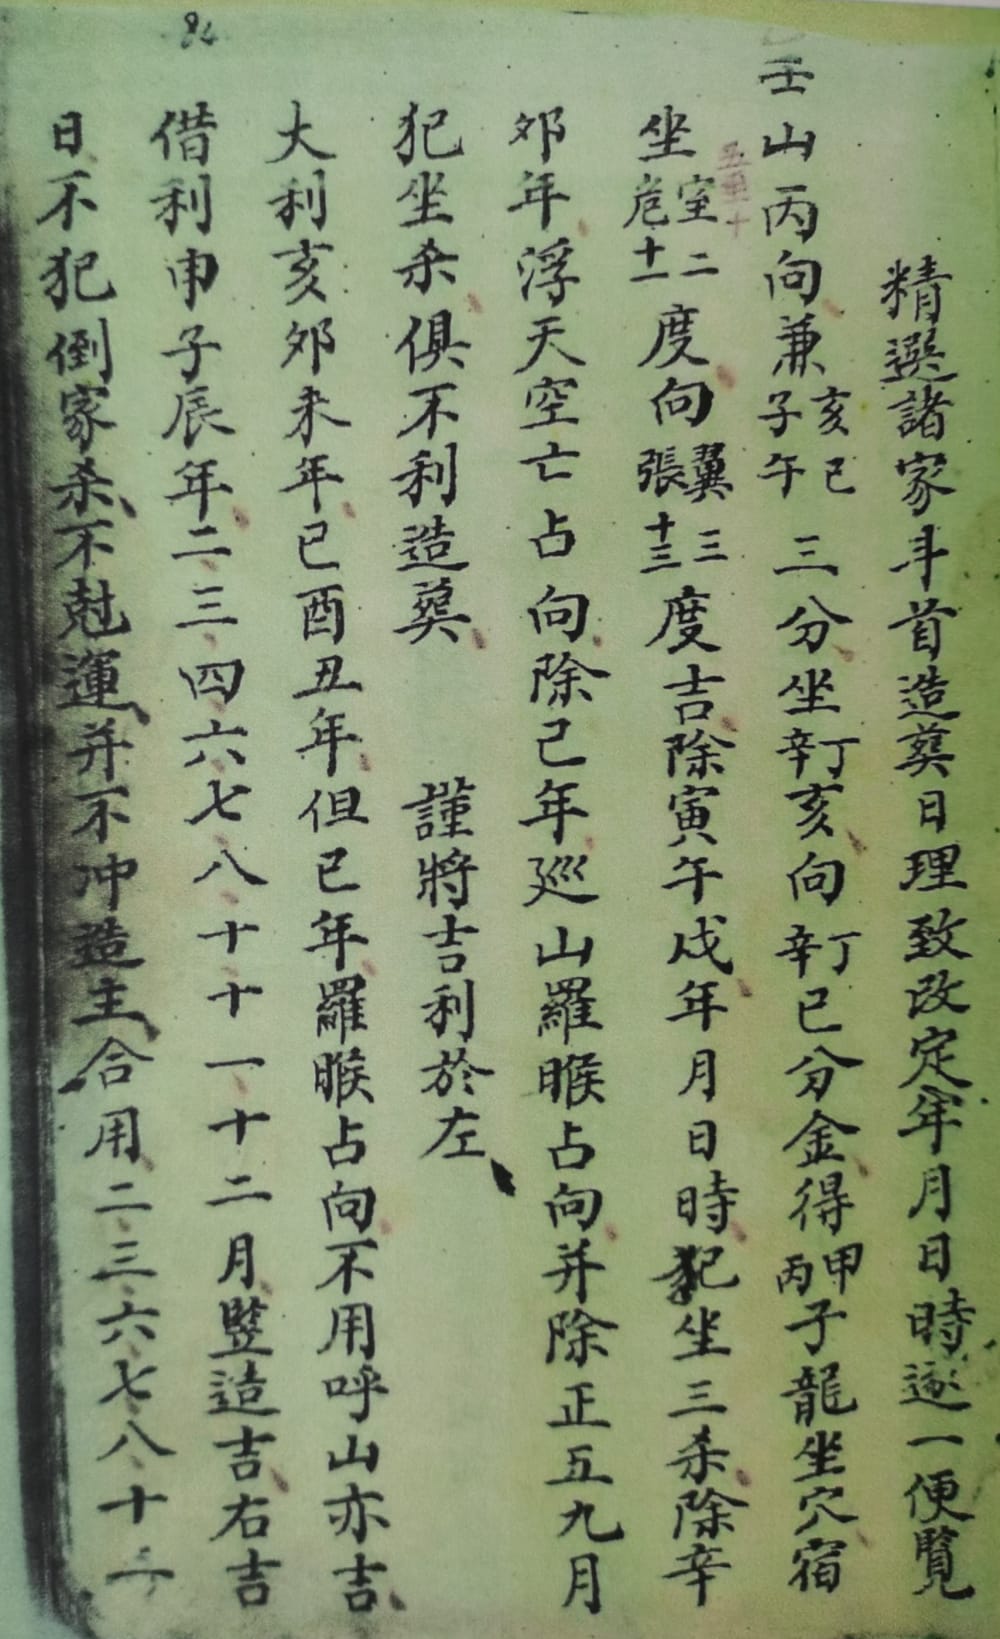 84
精選諸家斗首造葬日理致改定年月日時逐一便覧
壬山丙向兼亥巳子午三分坐丁辛亥向丁辛巳分金得甲丙子龍坐穴宿
坐室二危十一度向翼三張十三度吉除寅午戌年月日時犯坐三杀除辛
夘年浮天空亡占向除己年巡山羅睺占向并除正五九月
犯坐杀俱不利造葬 謹將吉利於左
大利亥夘未年巳酉丑年但巳年羅睺占向不用呼山亦吉
借利申子辰年二三四六七八十十一十二月竪造吉右吉
日不犯倒家杀不尅運并不冲造主合用二三六七八十